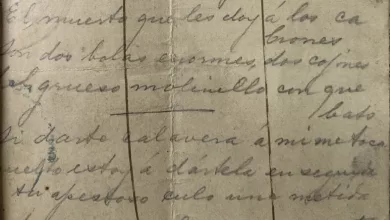 El muerto que les doy á los ca
brones
Son dos bolas enormes, dos cojones
I grueso molinillo con que
bato
Si darte calavera á mi me toca
puesto estoy á dártela en seguida
tu apestoso culo una metida